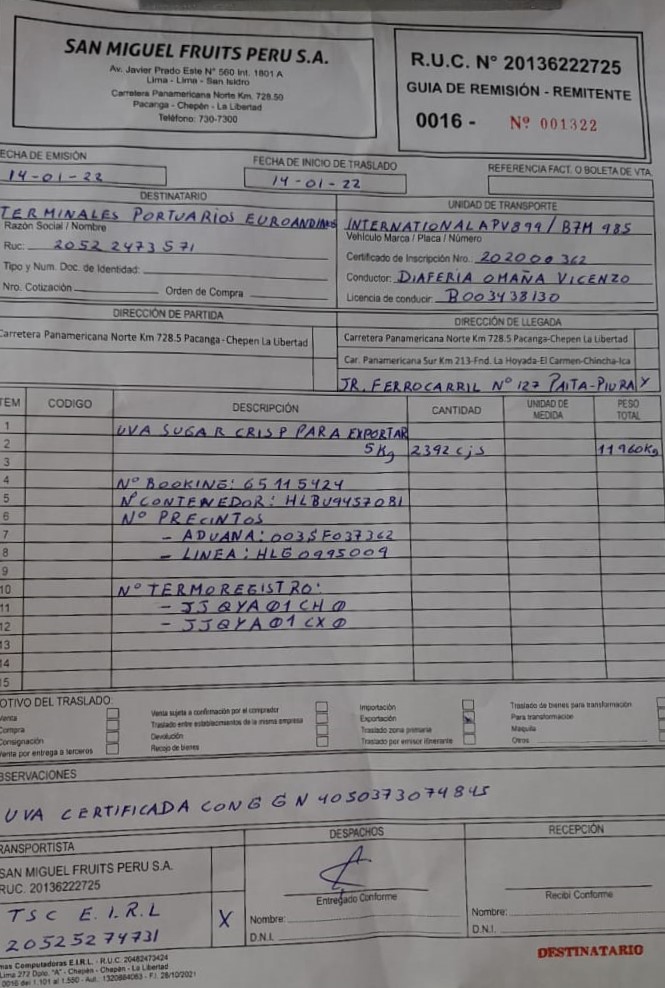 SAN MIGUEL FRUITS PERU S.A.
Av. Javier Prado Este N° 560 Int. 1801 A
Lima - Lima - San Isidro
Carretera Panamericana Norte Km. 728.50
Pacanga - Chepén - La Libertad
Teléfono: 730-7300
R.U.C. N° 20136222725
GUIA DE REMISIÓN - REMITENTE
0016 - Nº 001322
ECHA DE EMISIÓN
14-01-22
FECHA DE INICIO DE TRASLADO
14-01-22
REFERENCIA FACT. O BOLETA DE VTA.
DESTINATARIO
TERMINALES PORTUARIOS EUROANDINOS
Razón Social / Nombre
Ruc: 20522473571
Tipo y Num. Doc. de Identidad:
Nro. Cotización Orden de Compra
UNIDAD DE TRANSPORTE
INTERNATIONAL APV899 / B7M 985
Vehículo Marca / Placa / Número
Certificado de Inscripción Nro.: 202000362
Conductor: DIAFERIA OMAÑA VICENZO
Licencia de conducir: B003438130
DIRECCIÓN DE PARTIDA
Carretera Panamericana Norte Km 728.5 Pacanga-Chepen La Libertad
DIRECCIÓN DE LLEGADA
Carretera Panamericana Norte Km 728.5 Pacanga-Chepen La Libertad
Car. Panamericana Sur Km 213-Fnd. La Hoyada-El Carmen-Chincha-Ica
JR. FERROCARRIL N° 127 PAITA-PIURA X
TEM CODIGO DESCRIPCIÓN CANTIDAD UNIDAD DE MEDIDA PESO TOTAL
1 UVA SUGAR CRISP PARA EXPORTAR
2 5Kg 2392 cjs 11960Kg
3
4 N° BOOKING: 65115424
5 N° CONTENEDOR: HLBU9457081
6 N° PRECINTOS
7 - ADUANA: 003SF037362
8 - LINEA: HLG0995009
9
10 N° TERMOREGISTRO:
11 - JJQYA01CH0
12 - JJQYA01CX0
13
14
15
OTIVO DEL TRASLADO:
Venta
Compra
Consignación
Venta por entrega a terceros
Venta sujeta a confirmación por el comprador
Traslado entre establecimientos de la misma empresa
Devolución
Recojo de bienes
Importación
Exportación
Traslado zona primaria
Traslado por emisor itinerante
Traslado de bienes para transformación
Para transformación
Maquila
Otros
BSERVACIONES
UVA CERTIFICADA CON GGN 4050373074845
RANSPORTISTA
SAN MIGUEL FRUITS PERU S.A.
RUC. 20136222725
TSC E.I.R.L X
20525274731
DESPACHOS
Entregado Conforme
Nombre:
D.N.I.
RECEPCIÓN
Recibí Conforme
Nombre:
D.N.I.
DESTINATARIO
mas Computadoras E.I.R.L. - R.U.C. 20482473424
Lima 272 Dpto. "A" - Chepén - Chepén - La Libertad
0016 del 1.101 al 1.550 - Aut.: 1320884083 - F.I. 28/10/2021